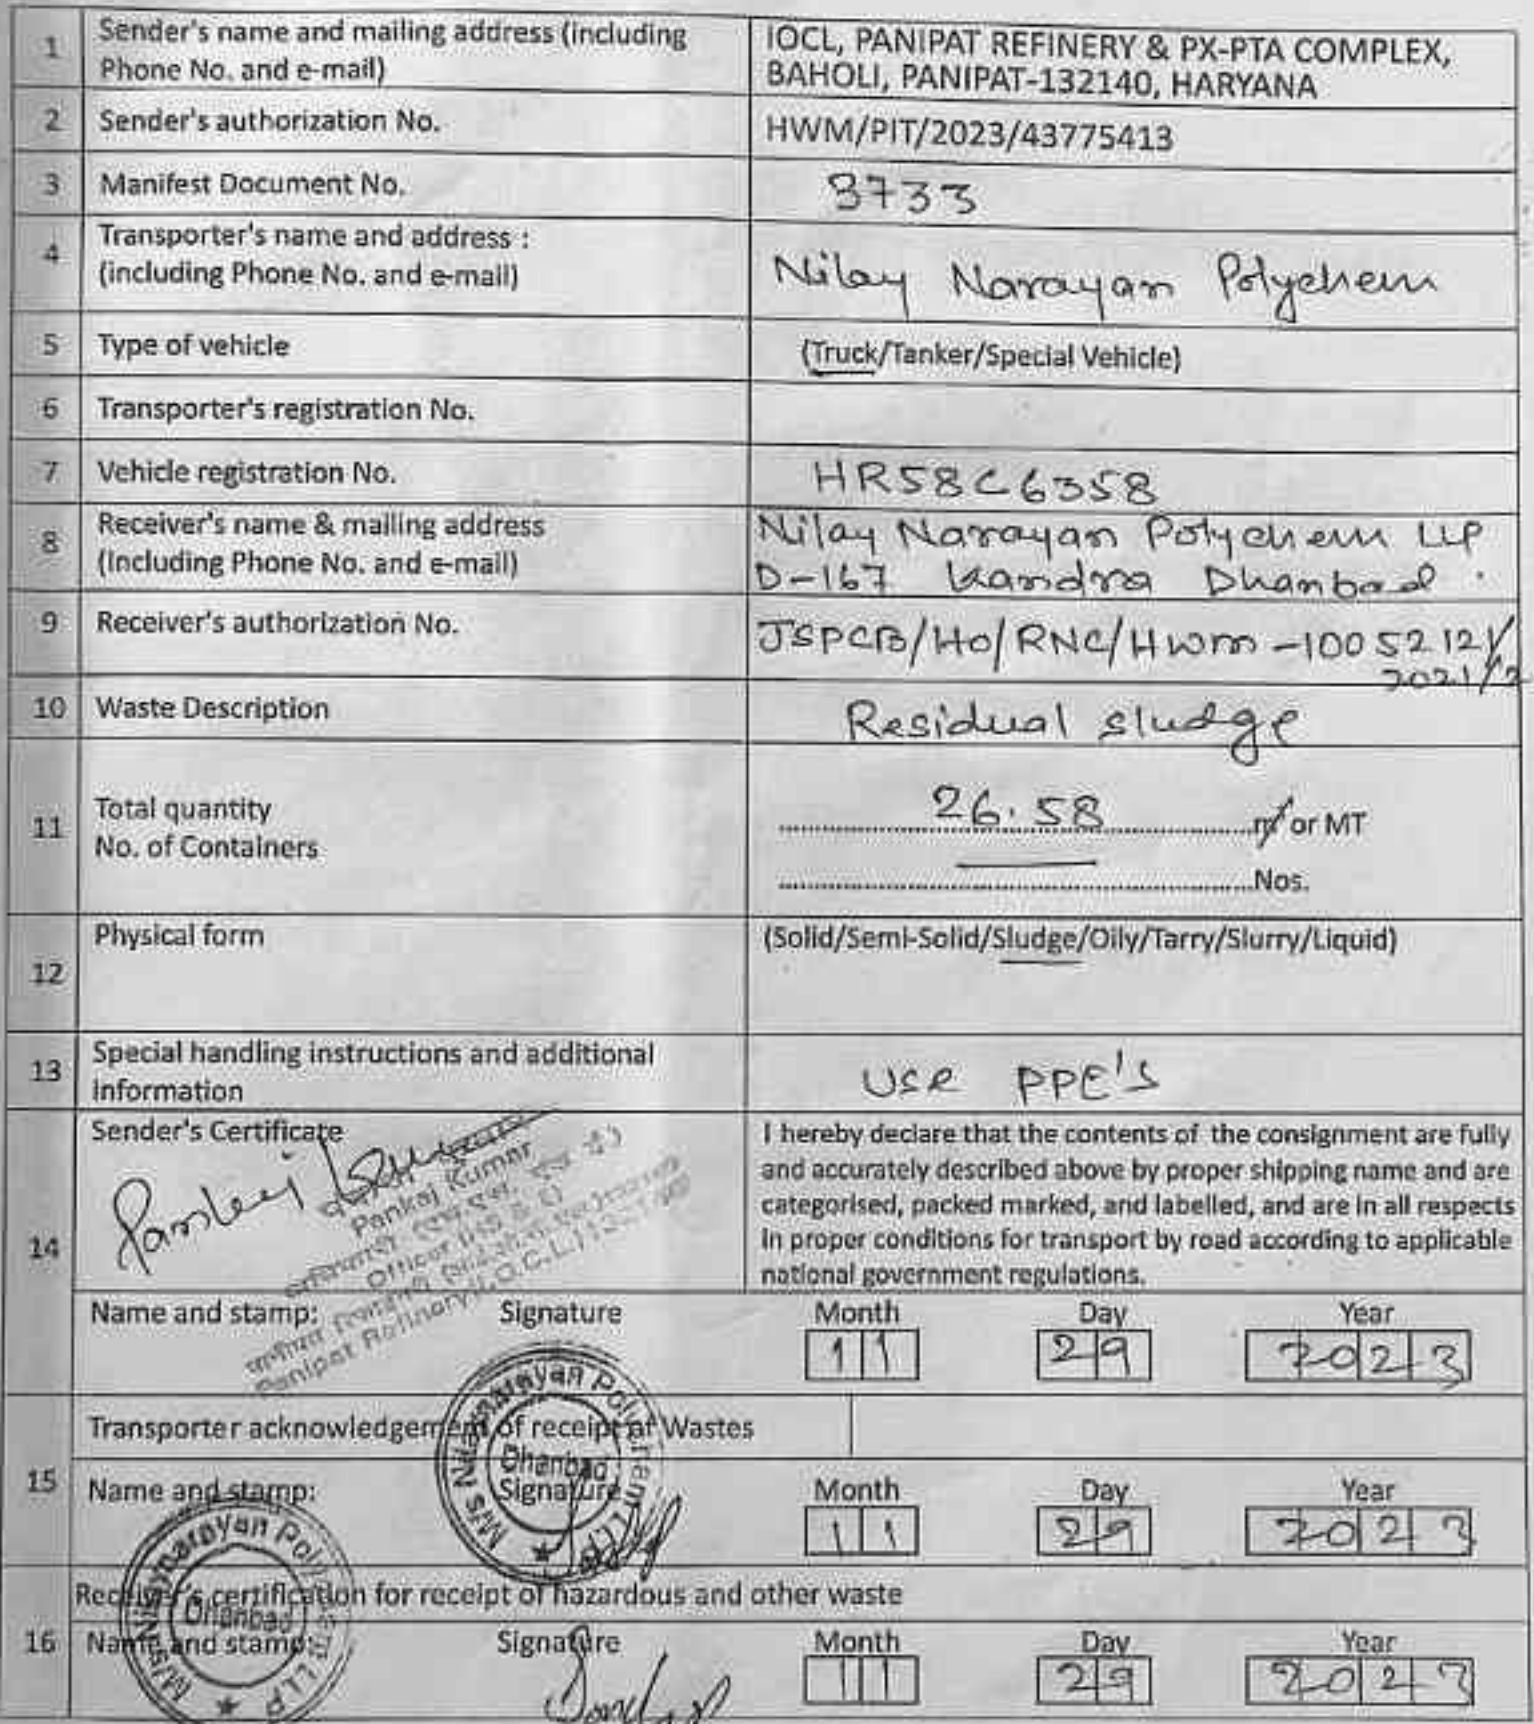 1 Sender's name and mailing address (including Phone No. and e-mail) IOCL, PANIPAT REFINERY & PX-PTA COMPLEX, BAHOLI, PANIPAT-132140, HARYANA
2 Sender's authorization No. HWM/PIT/2023/43775413
3 Manifest Document No. 3733
4 Transporter's name and address : (including Phone No. and e-mail) Nilay Narayan Polychem
5 Type of vehicle (Truck/Tanker/Special Vehicle)
6 Transporter's registration No.
7 Vehicle registration No. HR58C6358
8 Receiver's name & mailing address (Including Phone No. and e-mail) Nilay Narayan Polychem LLP D-167 Kandra Dhanbad
9 Receiver's authorization No. JSPCB/HO/RNC/HWM-10052121/2021/2
10 Waste Description Residual sludge
11 Total quantity 26.58 or MT
No. of Containers Nos.
12 Physical form (Solid/Semi-Solid/Sludge/Oily/Tarry/Slurry/Liquid)
13 Special handling instructions and additional information USE PPE'S
14 Sender's Certificate
Pankaj Kumar
Pankaj Kumar
Officer
Panipat Refinery (I.O.C.L.)
I hereby declare that the contents of the consignment are fully
and accurately described above by proper shipping name and are
categorised, packed marked, and labelled, and are in all respects
in proper conditions for transport by road according to applicable
national government regulations.
Name and stamp: Signature Month Day Year
11 29 2023
M/s Nilaynarayan Polychem LLP Dhanbad
15 Transporter acknowledgement of receipt of Wastes
Name and stamp: Signature Month Day Year
11 29 2023
M/s Nilaynarayan Polychem LLP Dhanbad
16 Receiver's certification for receipt of hazardous and other waste
Name and stamp: Signature Month Day Year
11 29 2023